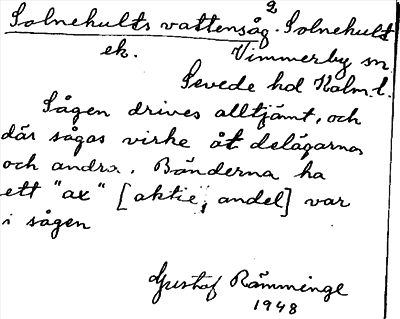 Solnehults vattensåg². Solnehult
ek. Vimmerby sn
Sevede hd Kalm. l.
Sågen drives alltjämt, och
där sågas virke åt delägarna
och andra. Bönderna ha
ett "ax" [aktie, andel] var
i sågen
Gustaf Rämminge
1948